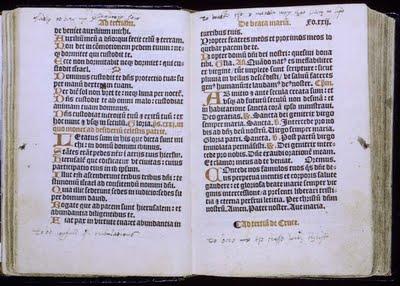 Ad tertiam.
de veniet auxilium michi.
Auxiliũ meũ a dño: qui fecit celũ et terram.
Non det in cõmotionem pedem tuum: neq;
dormitet qui custodit te.
Ecce non dormitabit neq; dormiet: qui cu-
stodit israel.
Dominus custodit te dñs protectio tua: su
per manũ dexteram tuam.
Per diẽ sol non vret te: neq; luna per noctẽ.
Dñs custodit te ab omni malo: custodiat
animam tuam dñs.
Dñs custodiat introitũ tuũ et exitũ tuũ: ex
hoc nunc et vsq; in seculũ. Gloria.
Letatus sum in his que dicta sunt mi
chi: in domũ domini ibimus.
Stãtes erãt pedes nr̃i: in atriis tuis hierlm.
Hierusalẽ que edificatur vt ciuitas: cuius
participatio eius in id ipsum.
Illuc eñ ascenderunt tribus tribus dñi: te
stimoniũ israel ad confitendum nomini dñi.
Quia illic sederunt sedes in iudicio: sedes su
per domum dauid.
Rogate que ad pacem sunt hierusalem: et
abundantia diligentibus te.
Fiat pax in virtute tua: et abundantia in
De beata maria. Fo.xxij.
turribus tuis.
Propter fratres meos et proximos meos: lo
quebar pacem de te.
Propter domũ dñi dei nostri: quesiui bona
tibi. Gl'ia. Añ. Quãdo nat9 es ineffabiliter
ex virgine, tũc implete sunt scripture: sicut
pluuia in vellus descẽdisti, vt saluũ faceres
gen9 humanũ: te laudam9 de9 noster. Cap'm.
Ab initio et ante secula creata sum: et
vsq; ad futurũ seculũ non desinã: et
in habitatione sancta corã ipso ministraui.
Deo gratias. Sancta dei genitrix virgo
semper maria. Sancta. Intercede pro no
bis ad dñm deũ nostrũ. Virgo semper maria.
Gloria patri. Sancta. Post partũ virgo
inuiolata permãsisti. Dei genitrix inter-
cede pro nobis. Dñe exaudi orationẽ meam.
Et clamor meus ad te veniat. Oremus.
Concede nos famulos tuos q̃s dñe de-
us perpetua mentis et corporis salute
gaudere: et gloriosa beate marie semper vir
ginis intercessione a presenti liberari tristi-
cia et eterna perfrui leticia. Per christũ dñm
nostrũ. Amen. Pater noster. Aue maria.
Ad tertiã de Cruce.